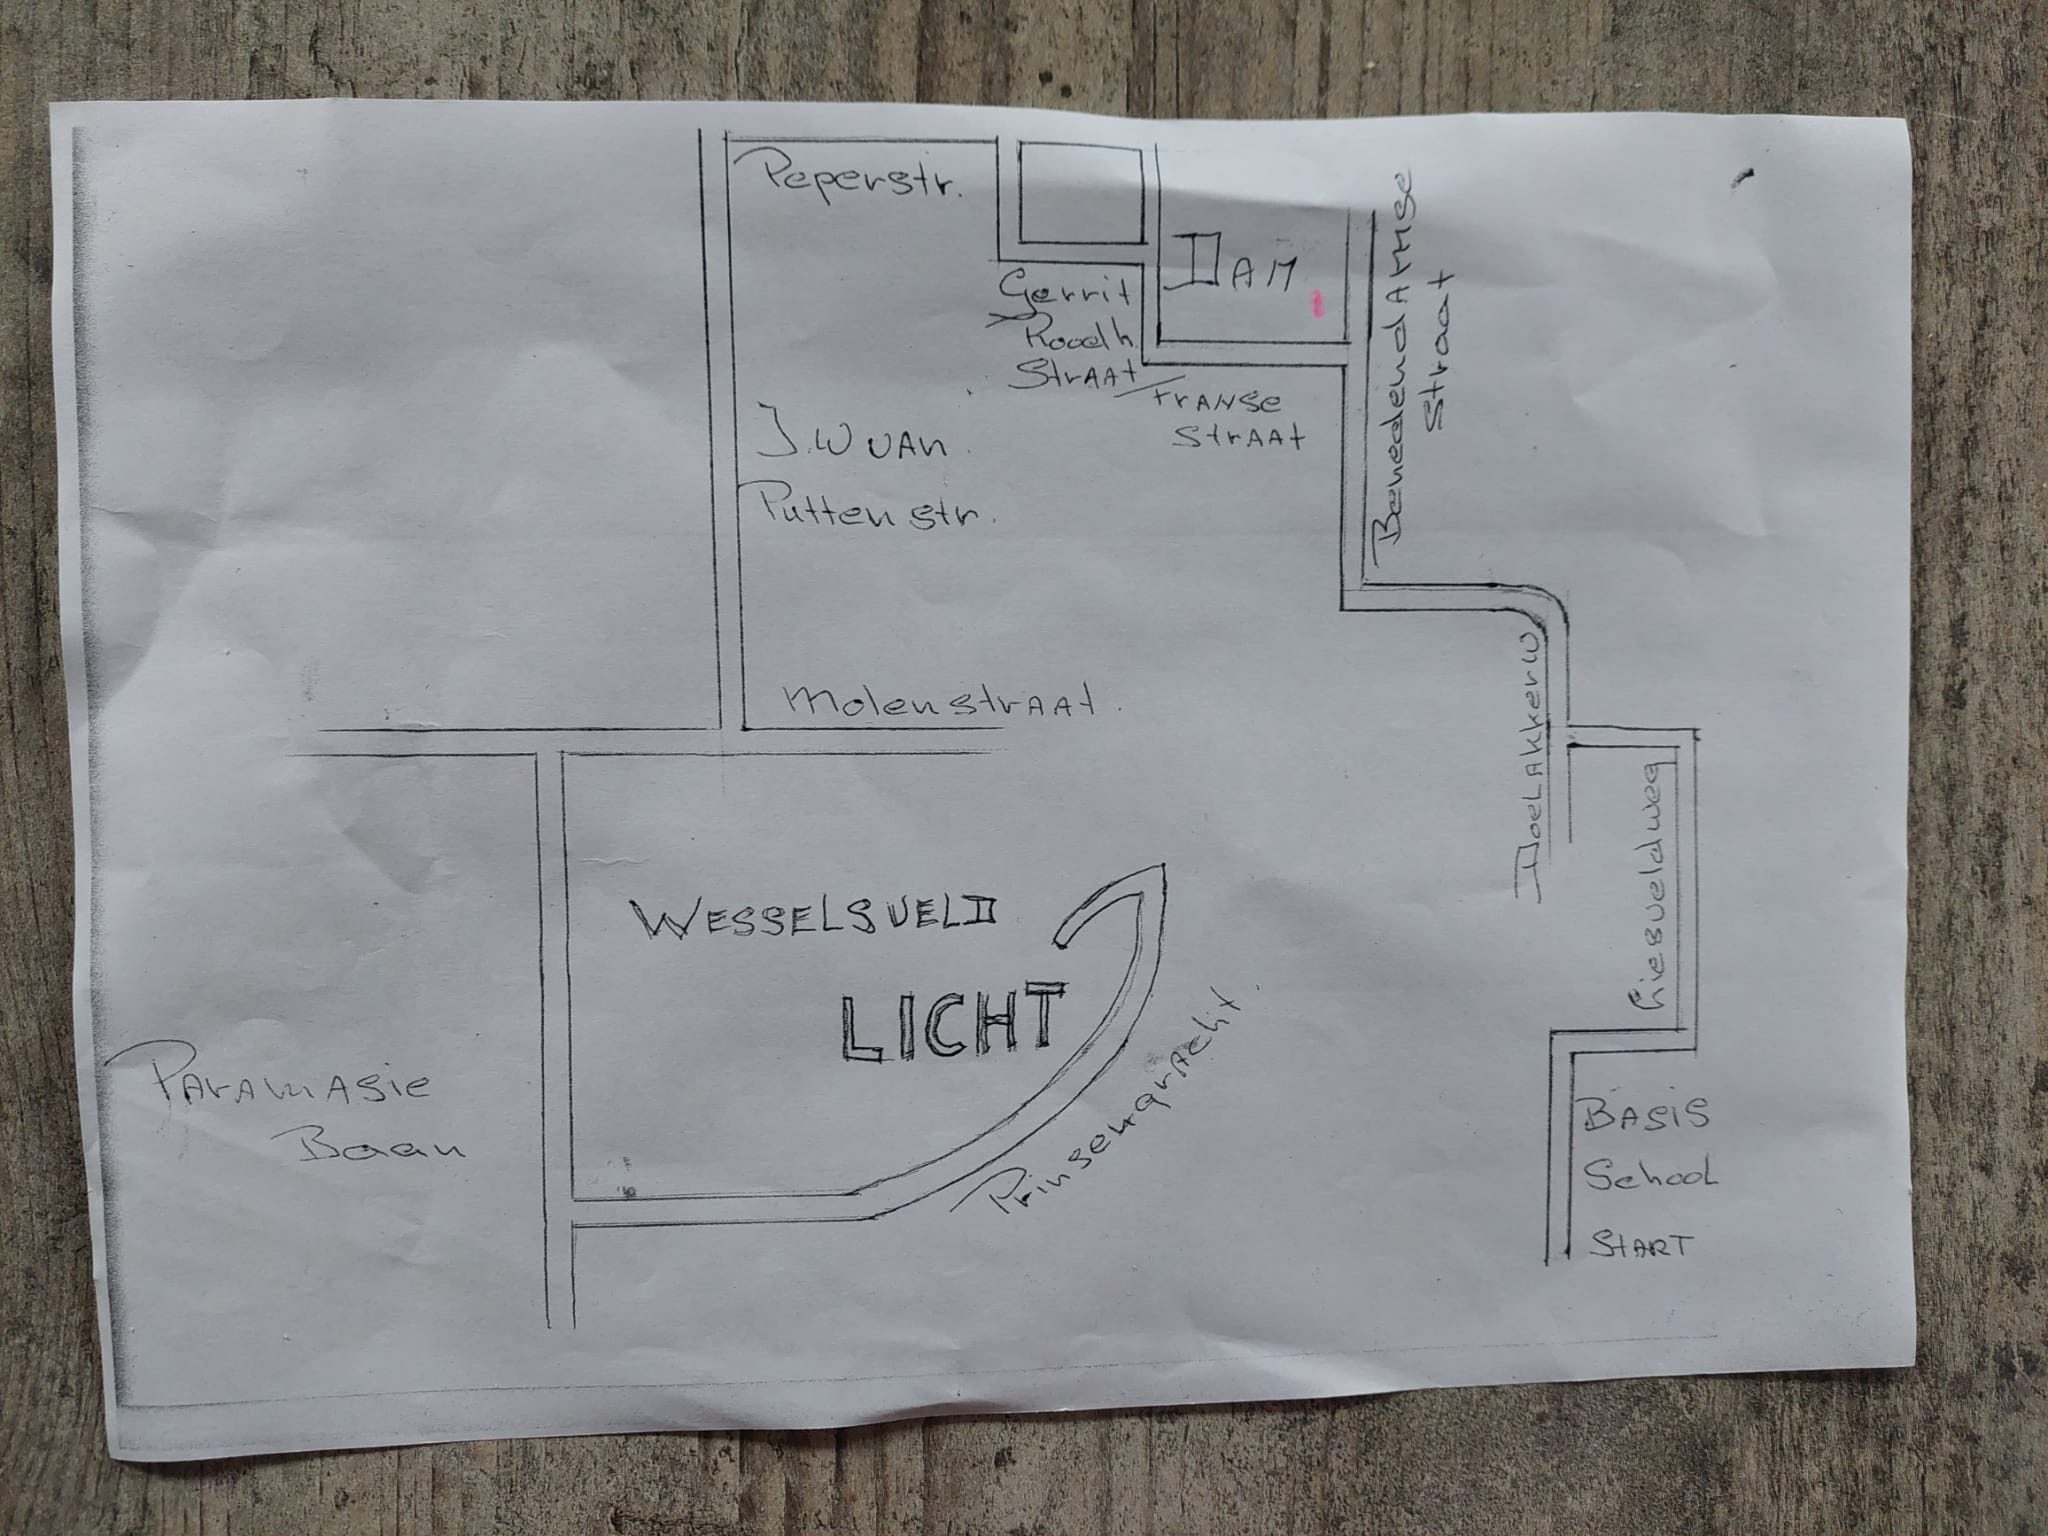 Peperstr.
DAM
Gerrit
Roodh.
Straat
Franse
Straat
Benedendamse
Straat
J.W van
Putten str.
Molenstraat.
Doelakkerw
Liesveldweg
Wesselsveld
LICHT
Prinsengracht.
Paramasie
Baan
Basis
School
Start